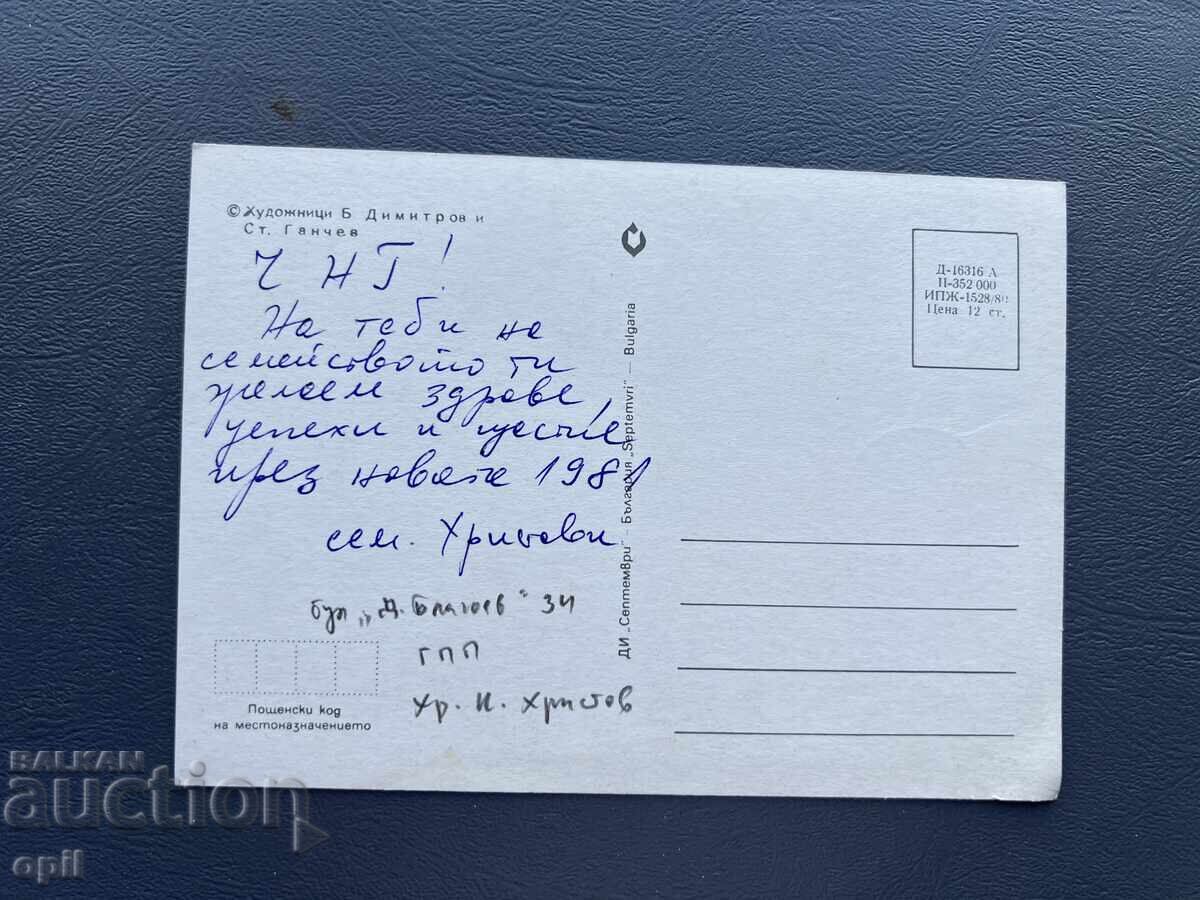 © Художници Б Димитров и
Ст. Ганчев
Ч Н Г !
На теб и на
семейството ти
желаем здраве,
успехи и щастие
през новата 1981
сем. Христови
бул „Д. Благоев“
ГПП
Хр. Н. Христов
Пощенски код
на местоназначението
ДИ „Септември“ – България „Septemvri“ – Bulgaria
Д-16316 А
II-352 000
ИПЖ-1528/80
Цена 12 ст.
BALKAN
auction
opil